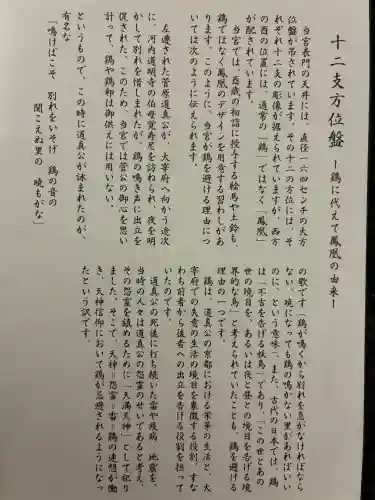 十二支方位盤 ー鶏に代えて鳳凰の由来ー
当宮表門の天井には、直径一六四センチの大方
位盤が吊されています。その十二の方位には、そ
れぞれ十二支の彫像が据えられていますが、西方
の酉の位置には、通常の「鶏」ではなく「鳳凰」
が配されています。
当宮では、酉歳の初詣に授与する絵馬や土鈴も、
鶏ではなく鳳凰のデザインを用意する習わしがあ
ります。このように、当宮が鶏を避ける理由につ
いては次のように伝えられます。
左遷された菅原道真公が、大宰府へ向かう途次
に、河内道明寺の伯母覚寿尼を訪ねられ、夜を明
かして別れを惜しまれたが、鶏の鳴き声に出立を
促された。このため、当宮では菅公の御心を思い
計って、鶏や鶏卵は御供えには用いない。
というもので、この時に道真公が詠まれたのが、
有名な
「鳴けばこそ 別れをいそげ 鶏の音の
聞こえぬ里の 暁もがな」
の歌です（鶏が鳴くから別れを急がなければなら
ない、暁になっても鶏の鳴かない里があればいい
のに、という意味）。また、古代の日本では、鶏
は「不吉を告げる妖鳥」であり、「この世とあの
世の境目を、あるいは夜と昼との境目を告げる境
界的な鳥」と考えられていたことも、鶏を避ける
理由の一つです。
鶏は、道真公の京都における栄華の生活と、大
宰府での失意の生活の境目を象徴する役割、すな
わち前者から後者への出立を告げる役割を担って
いたのです。
道真公の死後に打ち続いた雷や疫病、地震を、
当時の人々は道真公の怨霊のせいであると考え、
その怨霊を鎮めるために「天満天神」として祀り
ました。そこで、天神＝怨霊＝雷＝鶏の連想が働
き、天神信仰において鶏が忌避されるようになっ
たという訳です。